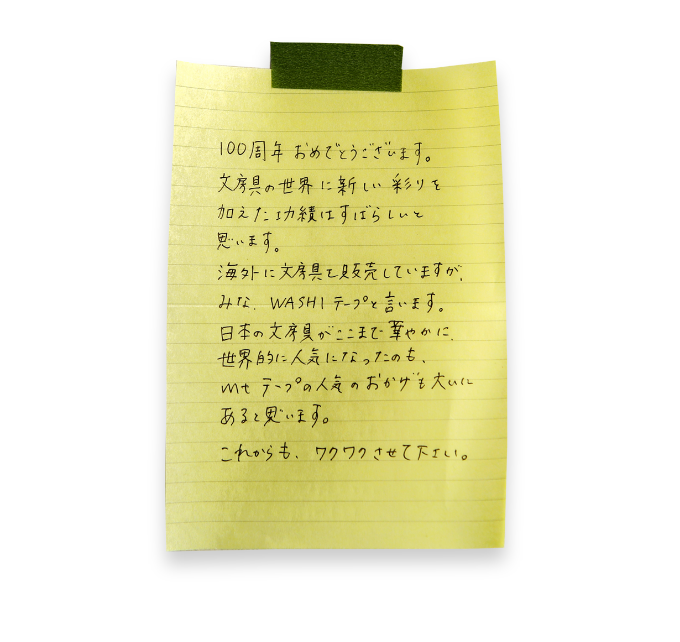 100周年おめでとうございます。
文房具の世界に新しい彩りを
加えた功績はすばらしいと
思います。
海外に文房具を販売していますが、
みな、WASHIテープと言います。
日本の文房具がここまで華やかに、
世界的に人気になったのも、
mtテープの人気のおかげも大いに
あると思います。
これからも、ワクワクさせて下さい。